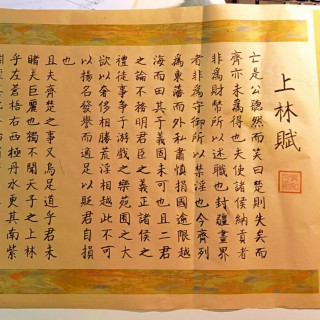 上林賦
亡是公聽然而笑曰楚則失矣而
齊亦未為得也夫使諸侯納貢者
非為財幣所以述職也封疆畫界
者非為守御所以禁淫也今齊列
為東藩而外私肅慎捐國逾限越
海而田其于義固未可也且二君
之論不務明君臣之義正諸侯之
禮徒事爭于游戲之樂苑囿之大
欲以奢侈相勝荒淫相越此不可
以揚名發譽而適足以貶君自損
也
且夫齊楚之事又烏足道乎君未
睹夫巨麗也獨不聞天子之上林
乎左蒼梧右西極丹水更其南紫